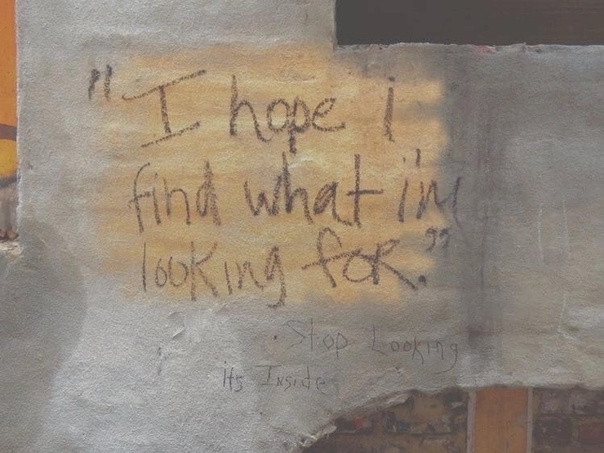 "I hope i
find what i'm
looking foR."
. Stop Looking
its Inside